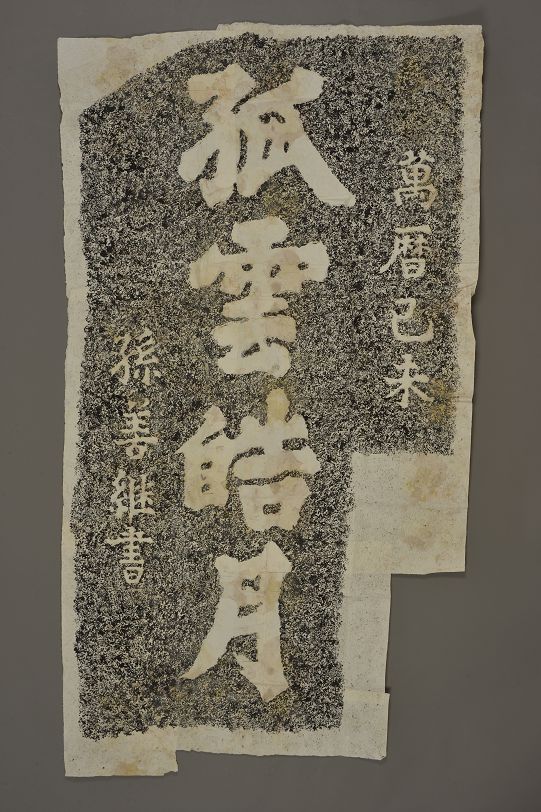 萬曆己未
孤雲皓月
孫善繼書